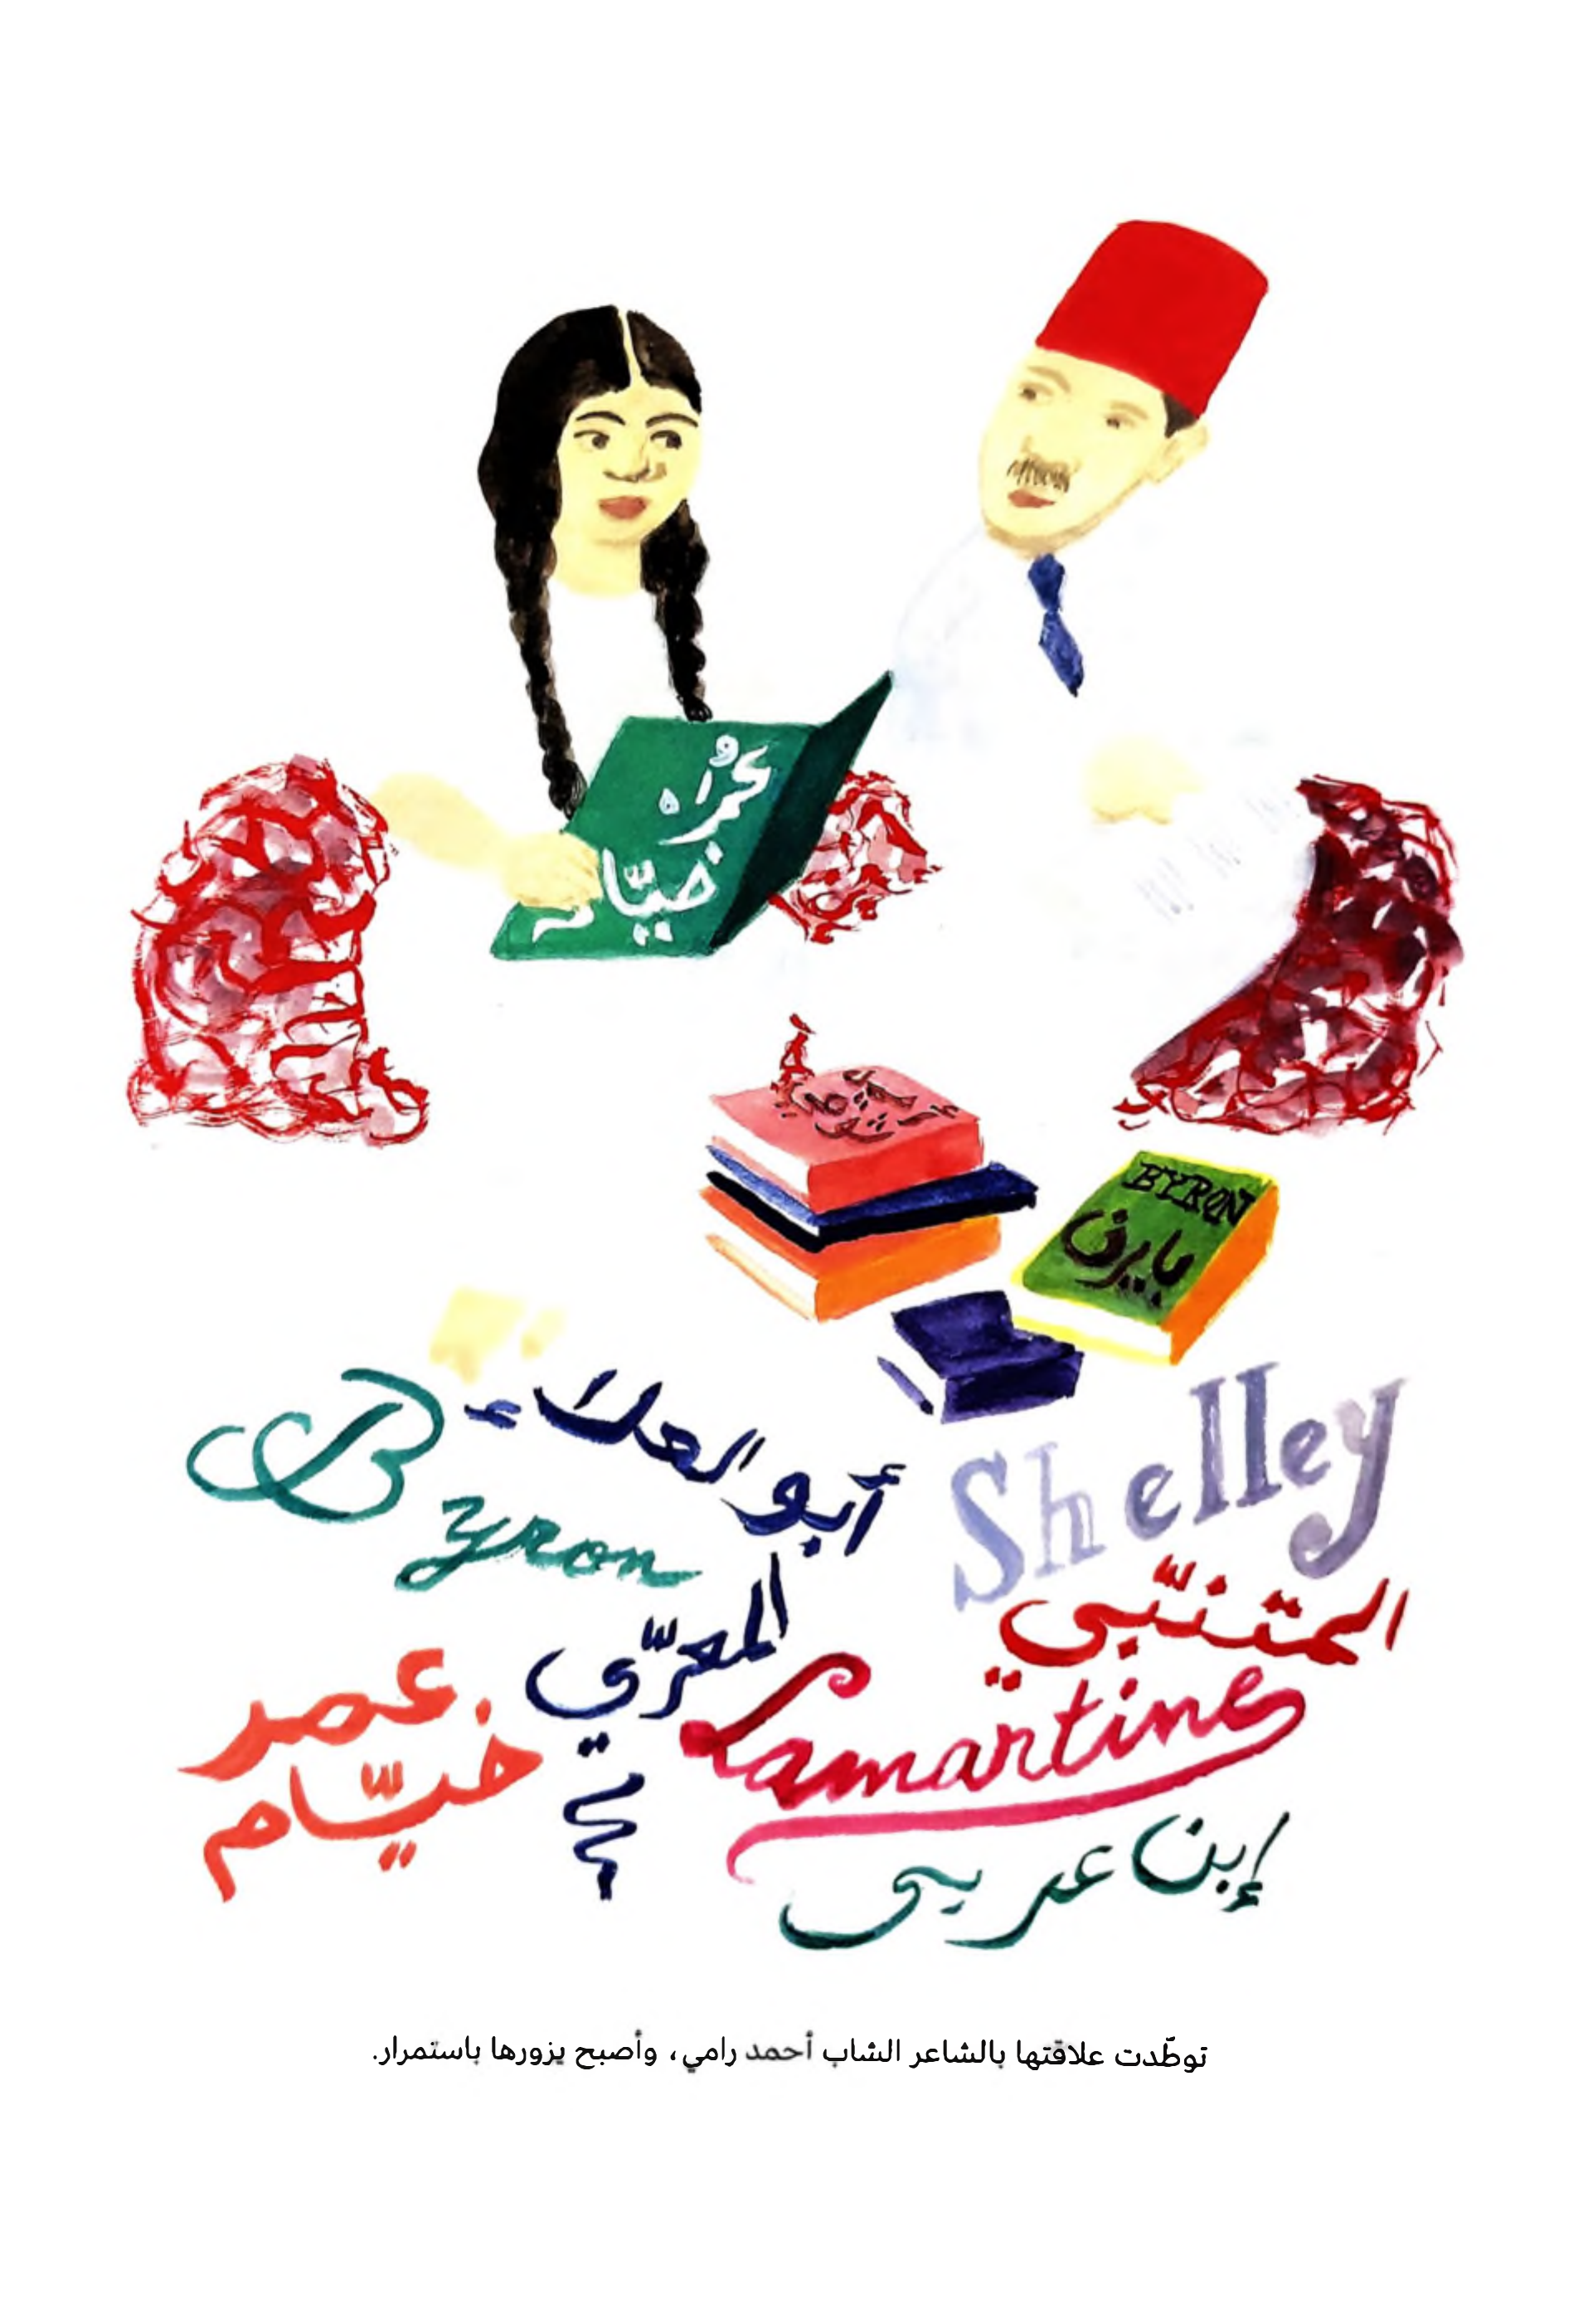 خيّام
BYRON
بايرن
Byron
أبو العلاء
المعرّي
Shelley
المتنبّي
Lamartine
عمر
خيّام
إبن عربي
توطّدت علاقتها بالشاعر الشاب أحمد رامي، وأصبح يزورها باستمرار.